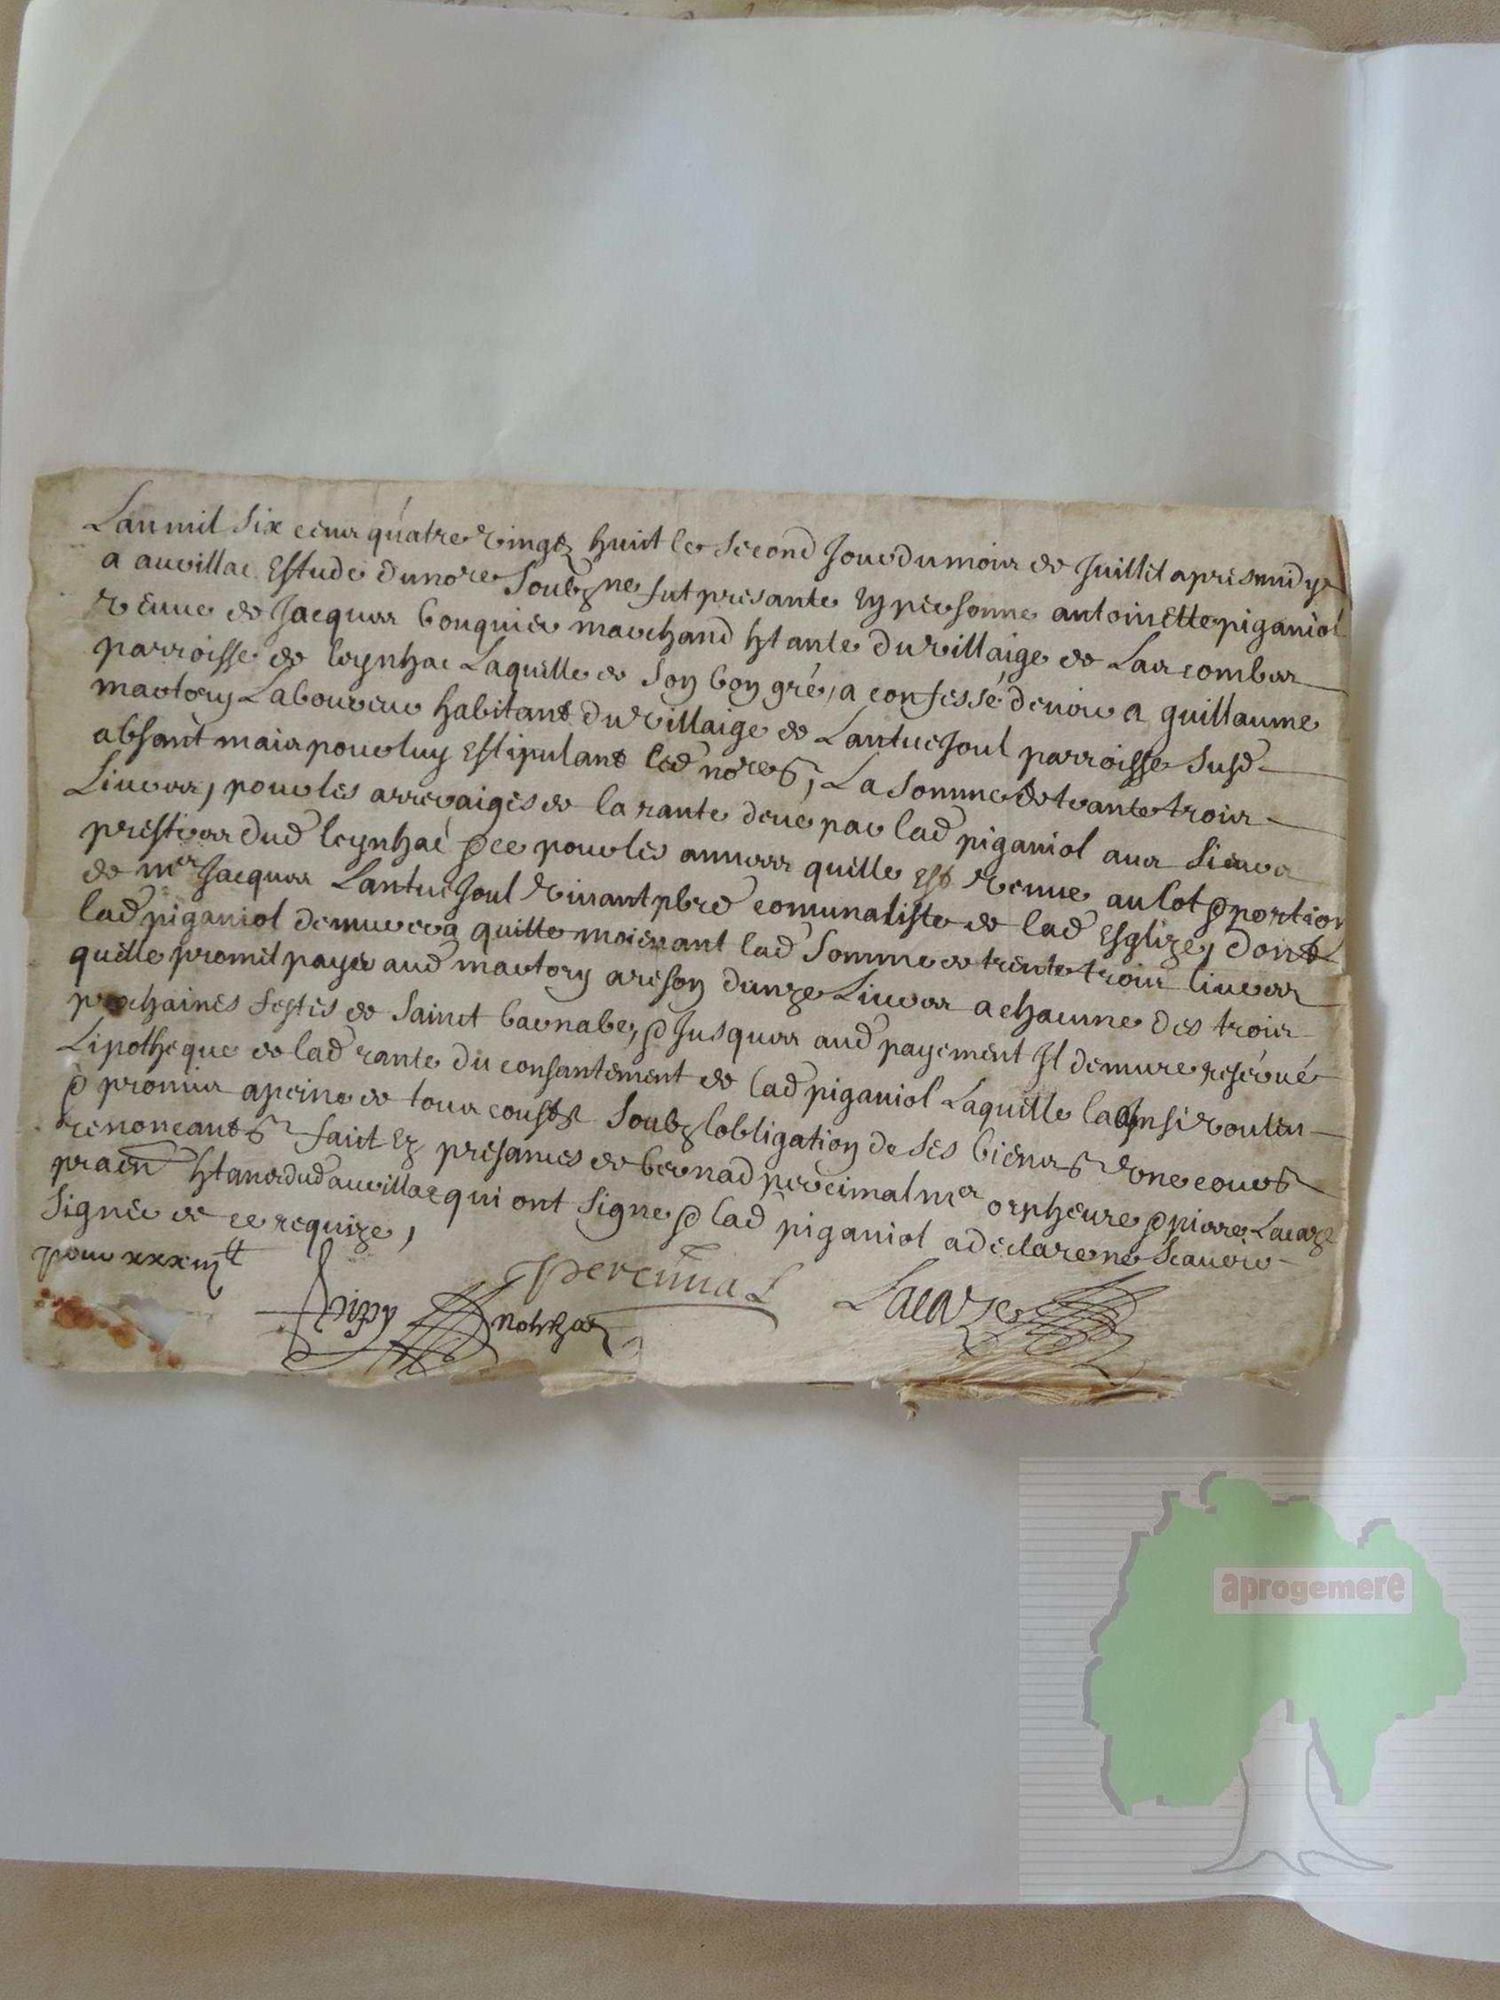 Lan mil Six cens quatre vingtz huit le second Jour du mois de Juillet apres midy
a auvillac Estude du nore Soubzne fut presante en personne antoinette piganiol
veuve de Jacques bouquier marchand htante du villaige de Las combes
parroisse de leynhac Laquelle de son bon gré, a confessé devoir a guillaume
martory Laboureur habitant du villaige de Lantuejoul parroisse susd
absant mais pour luy Estipulant led nores, La somme de trante trois
Livres, pour les arreraiges de la rante deue par lad piganiol aux Sieurs
prestres dud leynhac & ce pour les annees quelle est venue au lot & portion
de mer Jacques Lantuejoul vivant pbre comunaliste de lad Esglize, dont
lad piganiol demurera quitte moienant lad Somme de trente trois livres
quelle promet payer aud martory a reson dunze Livres a chacune des trois
prochaines festes de Sainct barnabe, & Jusques aud payement Il demure reservé
Lipotheque de lad rante du consantement de lad piganiol Laquelle la ainsi voulu
& promis a peine de tous coustz Soubz lobligation de ses biens
renonceant fait Ez presances de bernad percimal mer orpheure & pierre Lacaze
htans dud auvillac qui ont Signe & lad piganiol a declare ne Scavoir
Signer de ce requize,
pour xxxiij tt
percimal
Lacaze